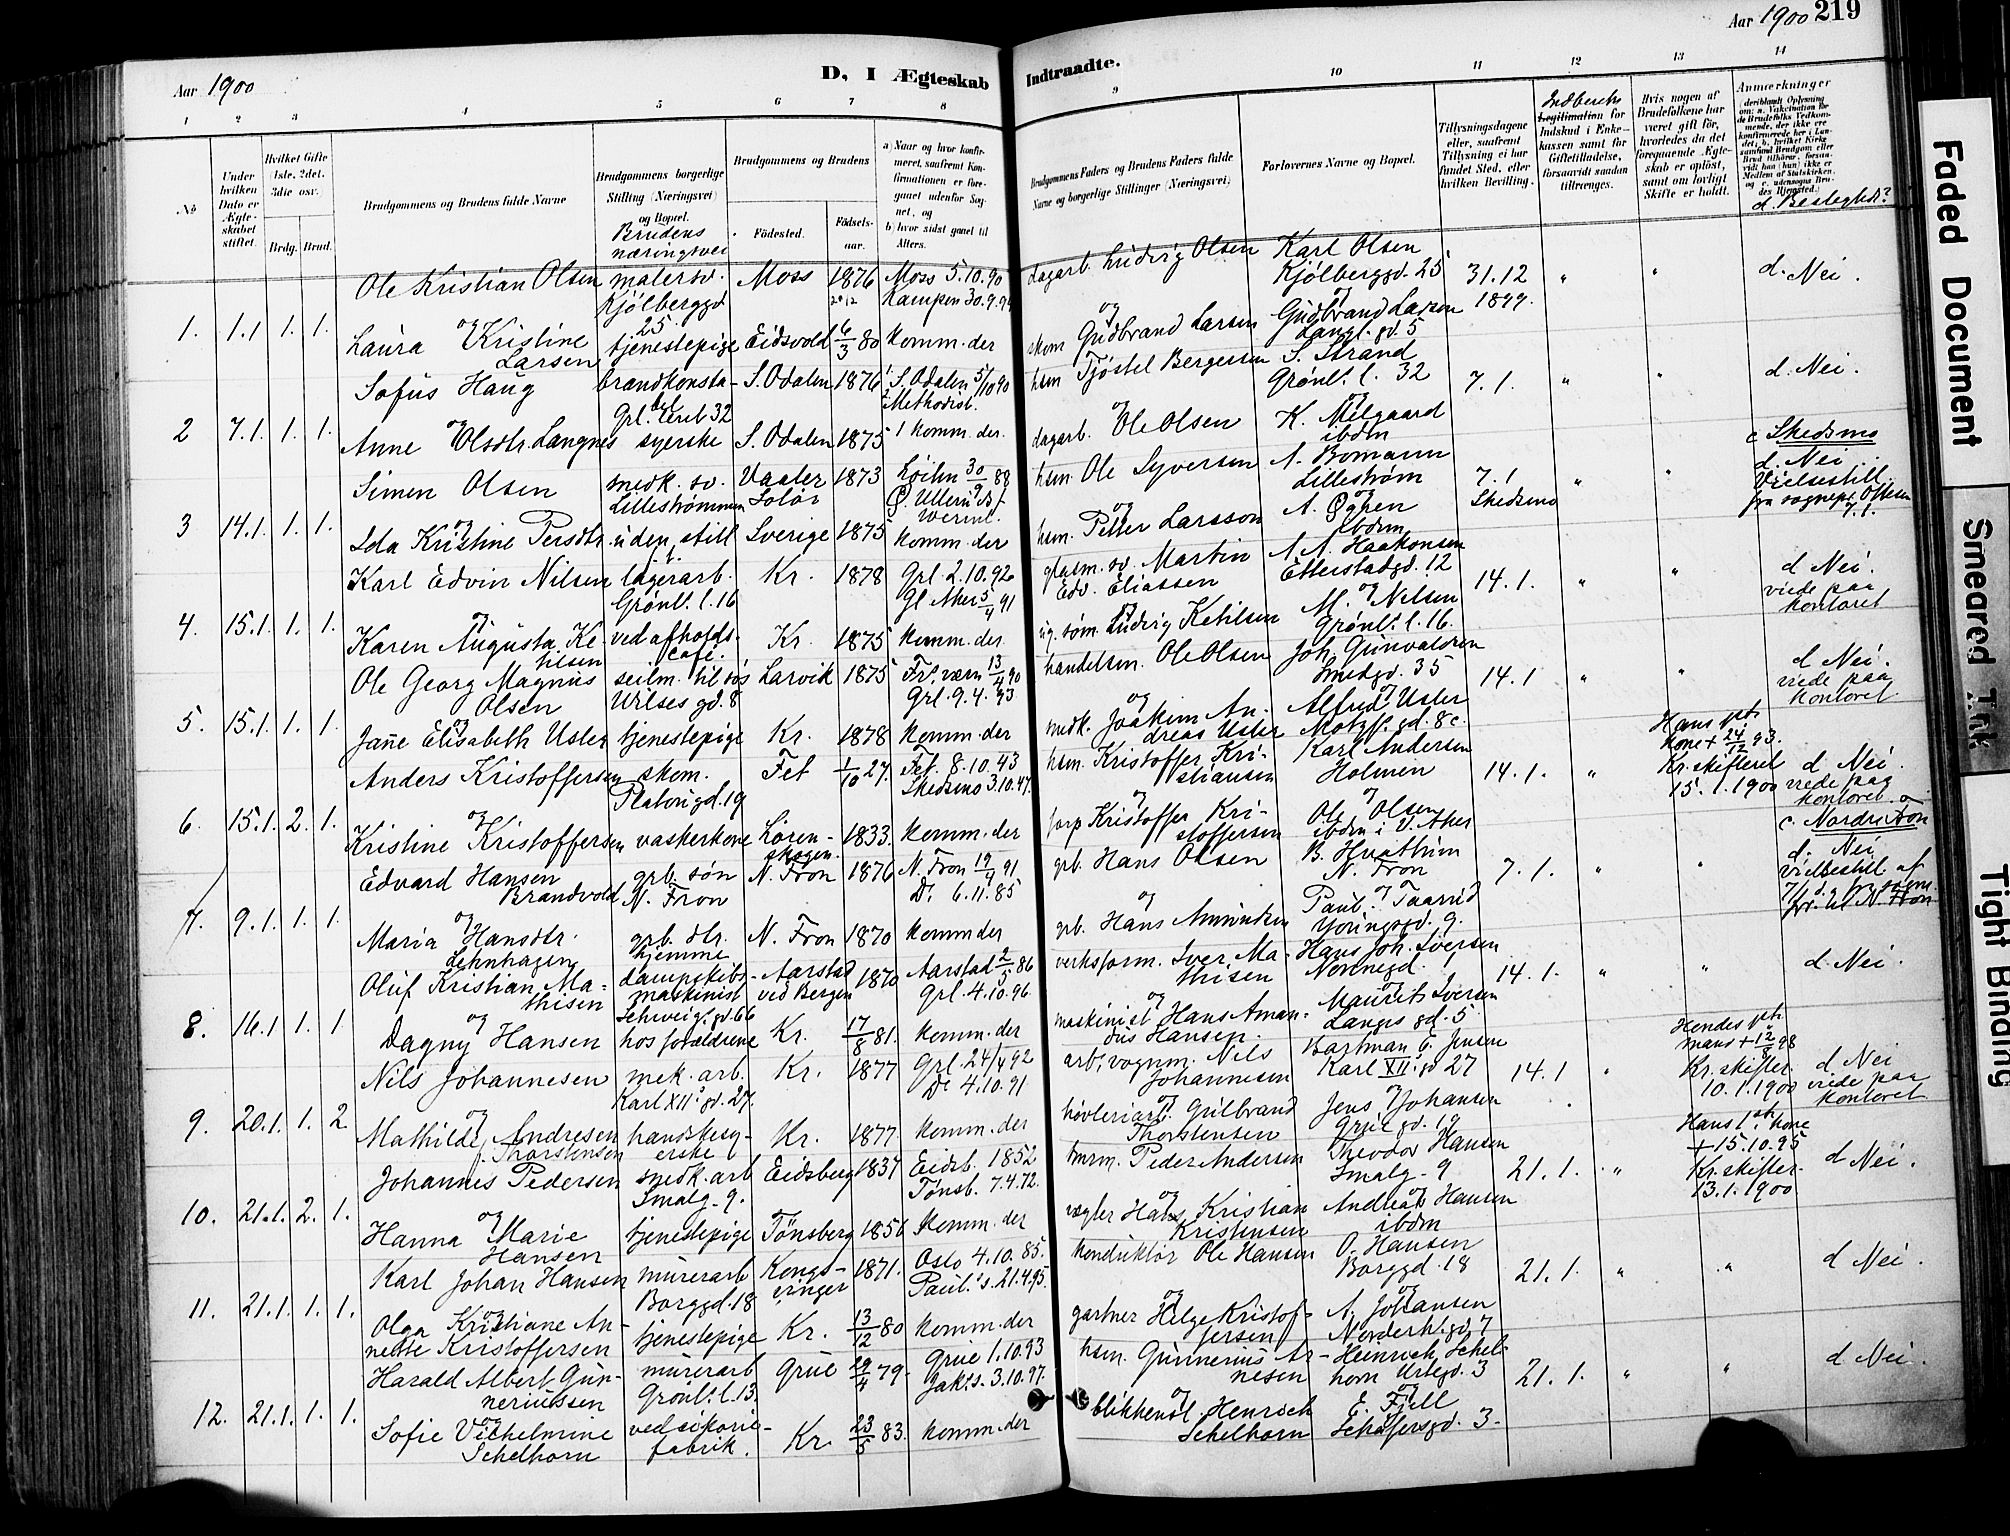 Aar 1900
D, I Ægteskab
Indtraadte.
Aar 1900 219
1 2 3 4 5 6 7 8 9 10 11 12 13 14
No
Under hvilken Dato er Ægteskabet stiftet.
Hvilket Gifte (1ste, 2det, 3die osv.
Brdg. Brud.
Brudgommens og Brudens fulde Navne
Brudgommens borgerlige Stilling (Næringsvei) og Bopæl.
Brudens næringsvei
Brudgommens og Brudens
Födested.
Födselsaar.
a) Naar og hvor konfirmeret, saafremt Konfirmationen er foregaaet udenfor Sognet, og
b) hvor sidst gaaet til Alters.
Brudgommens Faders og Brudens Faders fulde Navne og borgerlige Stillinger (Næringsvei)
Forlovernes Navne og Bopæl.
Tillysningsdagene eller, saafremt Tillysning ei har fundet Sted, efter hvilken Bevilling.
Legitimation for Indskud i Enkekassen samt for Giftetilladelse, forsaavidt saadan tiltrænges.
Hvis nogen af Brudefolkene har været gift för, hvorledes da det foregaaende Ægteskab er oplöst, samt om lovligt Skifte er holdt.
Anmærkninger
d. Beslegtet?
1. 1.1 1. 1.
Ole Kristian Olsen malersv. Kjölberggd 25 Moss 1876 Moss 5.10.90 Kampen 30.9.
dagarb. Ludvig Olsen Karl Olsen Kjölberggd. 25 31.12 1899. " " d. Nei.
og
Laura Kristine Larsen tjenestepige Eidsvold 6/3 80 komm. der
skom Gudbrand Larsen Gudbrand Larsen Langl. gd. 5
2 7.1. 1. 1.
Sofus Haug brandkonstabel Grl. leret 32 S. Odalen 1876 S. Odalen 5/10 90 Methodist.
hsm Tjöstel Bergersen S. Strand Grönl. l. 32 7.1. " " d. Nei.
og
Anne Olsdtr. Langnes syerske S. Odalen 1875 komm. der.
dagarb. Ole Olsen K. Melgaard ibdm
3 14.1. 1. 1.
Simen Olsen smedk. sv. Lilleströmmen Vaaler Solör 1873 Löiten 30/9 88
hsm. Ole Syversen A. Bomann Lilleström 7.1 Skedsmo " " c Skedsmo d. Nei. Vielsestill. fra sognepr. 7.1.
og
Ida Kristine Persdtr. uden still Sverige 1875 komm. der
hsm. Petter Larsson A. Ibdm
4. 15.1. 1. 1.
Karl Edvin Nilsen lagerarb. Grönl. l. 16 Kr. 1878 Grl. 2.10.92 Gl Aker 5/4 91
glasm. sv. Martin Edv. Eliassen A. A. Haakonsen Etterstadgd. 12 14.1. " " d Nei. viede paa kontoret
og
Karen Augusta Ketilsen ved afholdscafé. Kr. 1875 komm. der
sig. söm. Ludvig Ketilsen M. Nilsen Grönl. l. 16.
5. 15.1. 1. 1.
Ole Georg Magnus Olsen seilm. til sös Wilses gd. 8 Larvik 1875 Fr. værn 13/4 90 Grl. 9.4.93
handelsm. Ole Olsen Joh. Gunvaldsen Smedgd. 35 14.1 " " d Nei. viede paa kontoret
og
Jane Elisabeth Uster tjenestepige Kr. 1878 komm. der
smedk. Joakim Andreas Uster Alfred Uster Motzff. gd. 8 c.
6. 15.1. 2. 1.
Anders Kristoffersen skom. Platousgd. 19 Fet 1/10 27. Fet. 8.10.43 Skedsmo 3.10.47.
hsm. Kristoffer Kristiansen Karl Andersen Holmen 14.1. " Hans 1ste kone + 24/12 93. Kr. skifteret 15.1.1900 d Nei. viede paa kontoret.
og
Kristine Kristoffersen vaskerkone Lörenskogen 1833. komm. der
forp Kristoffer Kristoffersen Ole Olsen ibdm i V. Aker
7. 9.1. 1. 1.
Edvard Hansen Brandvold grb. sön N. Fron N. Fron 1876 N. Fron 19/4 91 Do 6.11.85
grb. Hans Olsen B. Hvattum N. Fron 7.1. " " c. Nordre Fron d. Nei Vielsestil. af 7/1 d. a. fra sogne pr. til N. Fron
og
Maria Hansdtr. Lehnhagen grb. dtr. hjemme N. Fron 1870 komm der
grb. Hans Amundsen Paul Taarud Youngsgd. 9.
8. 14.1 1. 1
Oluf Kristian Mathisen dampskibsmaskinist Schweig. gd. 66 Aarstad ved Bergen 1870 Aarstad 2/5 86 Grl. 4.10.96
verksform. Iver Mathisen Hans Joh. Iversen Nonnegd. 1 14.1. " " d. Nei.
og
Dagny Hansen hos forældrene Kr. 17/8 81. komm. der
maskinist Hans Amandus Hansen. Maurits Iversen Langes gd. 5
9. 20.1. 1. 2
Nils Johannesen mek. arb. Karl XIIs gd. 27. Kr. 1877 Grl. 24/4 92 Do 4.10.91
arb., vognm. Nils Johannesen Bartman C. Jensen Karl XIIs gd 27 14.1 " Hendes 1ste mand + 12/9 98 Kr. skifter. 10.1.1900 d Nei viede paa kontoret
og
Mathilde Andresen f. Thorstensen handskesyerske Kr. 1877. komm. der
hövleriarb. Gulbrand Thorstensen Jens Johansen Grue gd. 19
10. 21.1. 2. 1.
Johannes Pedersen smedk. arb Smalg. 9. Eidsberg 1837 Eidsb. 1852 Tönsb. 7.4.72.
tmrm. Peder Andersen Theodor Hansen Smalg. 9 21.1. " Hans 1ste kone + 15.10.95 Kr. skifter. 13.1.1900 d Nei.
og
Hanna Marie Hansen tjenestepige Tönsberg 1856 komm. der
vægter Hans Kristian Kristensen Andreas Hansen ibdm
11. 21.1. 1. 1.
Karl Johan Hansen murerarb Borggd. 18 Kongsvinger 1871. Oslo 4.10.85. Paul. s. 21.4.95.
konduktör Ole Hansen O. Hansen Borggd. 18 21.1. " " d Nei.
og
Olga Kristiane Annette Kristoffersen tjenestepige Kr. 13/12 80 komm. der
gartner Helge Kristoffersen A. Johansen Norderhl. gd. 7
12. 21.1. 1. 1.
Harald Albert Gunneriussen murerarb Grönl. l. 13. Grue 29/4 79. Grue 1.10.93 Jak. s. 3.10.97.
hsm. Gunnerius Arnesen Heinrich Schelhorn Urtegd. 3 21.1. " " d Nei.
og
Sofie Vilhelmine Schelhorn ved cikoriefabrik. Kr. 23/5 83. komm. der
blikkensl. Henrich Schelhorn E. Fjell Schäffersgd. 3.
Faded Document
Smeared Ink
Tight Binding